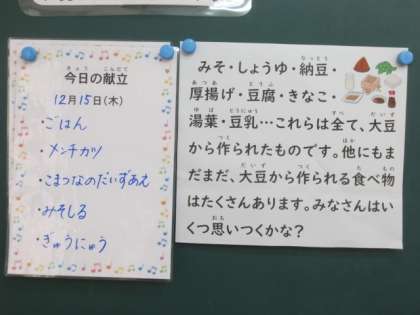 今日の献立
12月15日(木)
・ごはん
・メンチカツ
・こまつなのだいずあえ
・みそしる
・ぎゅうにゅう
みそ・しょうゆ・納豆・
厚揚げ・豆腐・きなこ・
湯葉・豆乳…これらは全て、大豆
から作られたものです。他にもま
だまだ、大豆から作られる食べ物
はたくさんあります。みなさんはい
くつ思いつくかな?